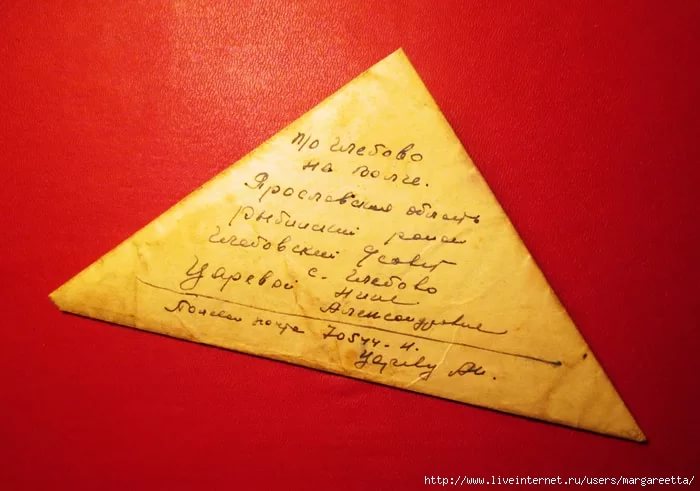 п/о Глебово
на Волге.
Ярославская область
Рыбинский район
Глебовский
с. Глебово
Царевой Нине
Александровне
Полевая почта 70544-Н.
Цареву Ан.
http://www.liveinternet.ru/users/margareetta/